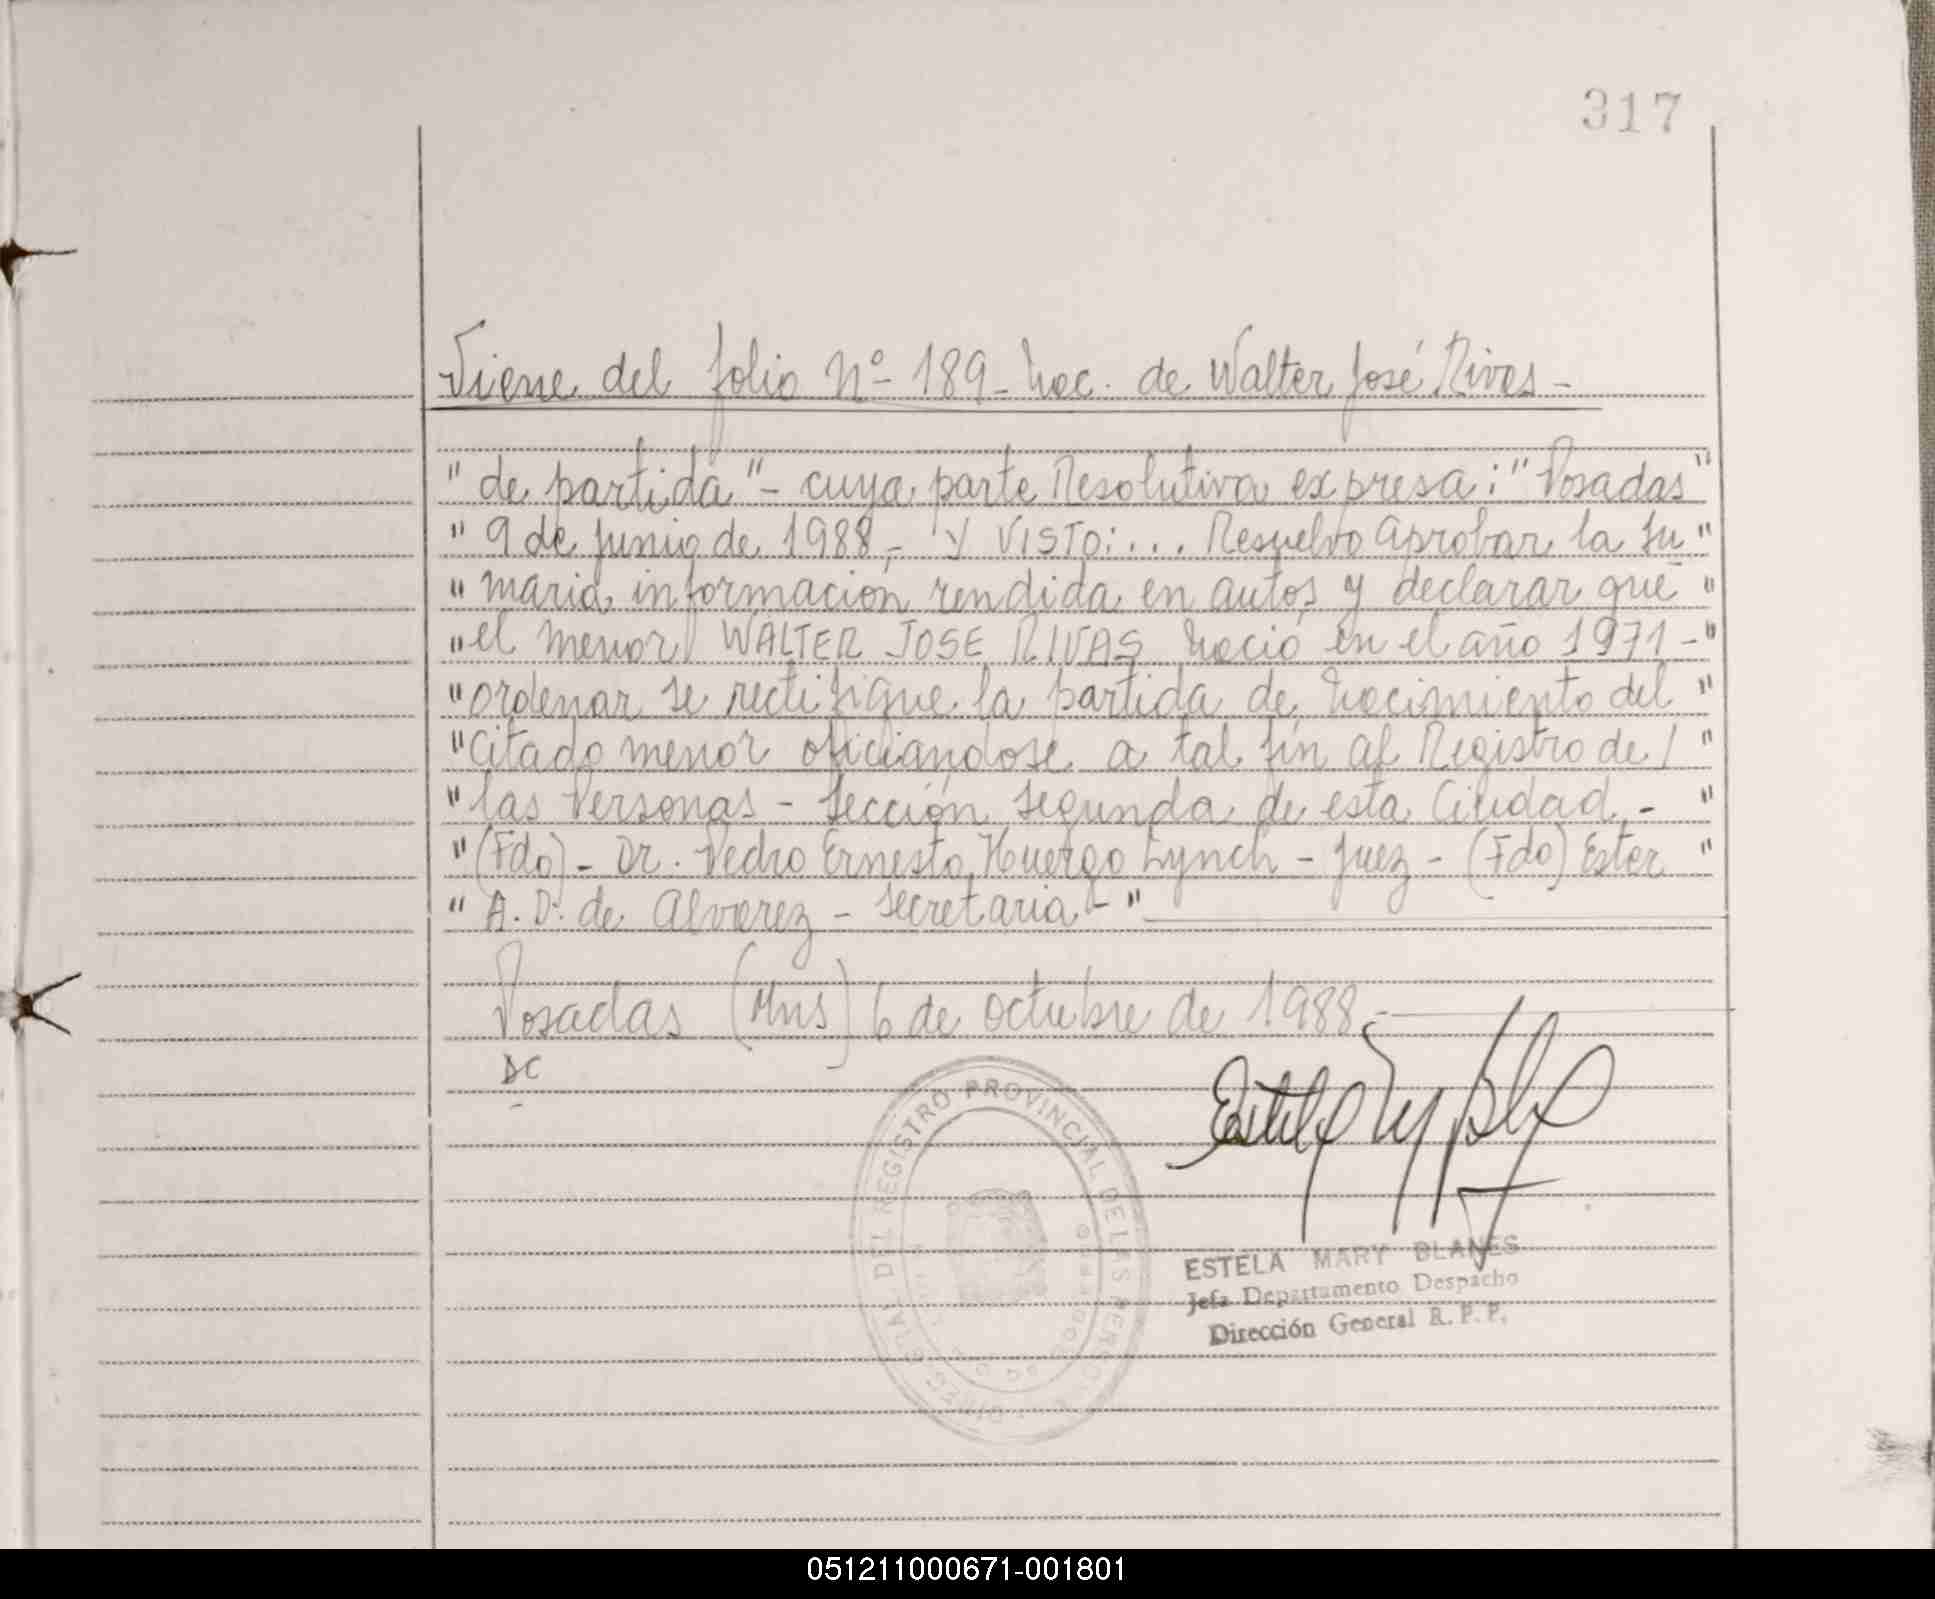 317
Viene del folio Nº 189 - Nac. de Walter José Rivas -
" de partida" - cuya parte Resolutiva expresa: "Posadas "
" 9 de junio de 1988.- Y VISTO:... Resuelvo Aprobar la su "
" maria información rendida en autos y declarar que "
" el menor WALTER JOSE RIVAS nació en el año 1971 - "
" ordenar se rectifique la partida de nacimiento del "
" citado menor oficiandose a tal fin al Registro de / "
" las Personas - Sección Segunda de esta Ciudad.- "
" (Fdo) - Dr. Pedro Ernesto Huergo Lynch - Juez - (Fdo) Ester "
" A. D. de Alvarez - Secretaria - "
Posadas (Mns) 6 de octubre de 1988.-
DC
DEL REGISTRO PROVINCIAL DE LAS PERSONAS
ESTELA MARY BLANES
Jefa Departamento Despacho
Dirección General R. P. P.
051211000671-001801